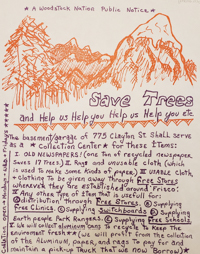 * A Woodstock Nation Public Notice *
Save Trees
and Help us Help you Help us Help you etc.
The basement/garage of 775 Clayton St Shall serve
as a *Collection Center* for These Items:
I OLD NEWSPAPERS! (one Ton of recycled newspaper
Saves 17 Trees) II Rags and unusable cloth (which
is used To make Some kinds of paper) III USABLE Cloth,
* clothing To be given away Through Free Stores
whenever they are established around Frisco!
IV Any other type of item That is useful for:
① distribution Through Free Stores. ② Supplying
Free Clinics ③ Supplying Switchboards ④ Supplying
Earth people Park Rangers. ⑤ Supplying Free Schools.
V We will collect aluminum cans to recycle to keep The
environment fresh * (we will profit from the collection
of the Aluminum, paper, and rags To pay for and
maintain a pick-up Truck that we now Borrow) *
Collection open * Monday - Wed. - Fridays *